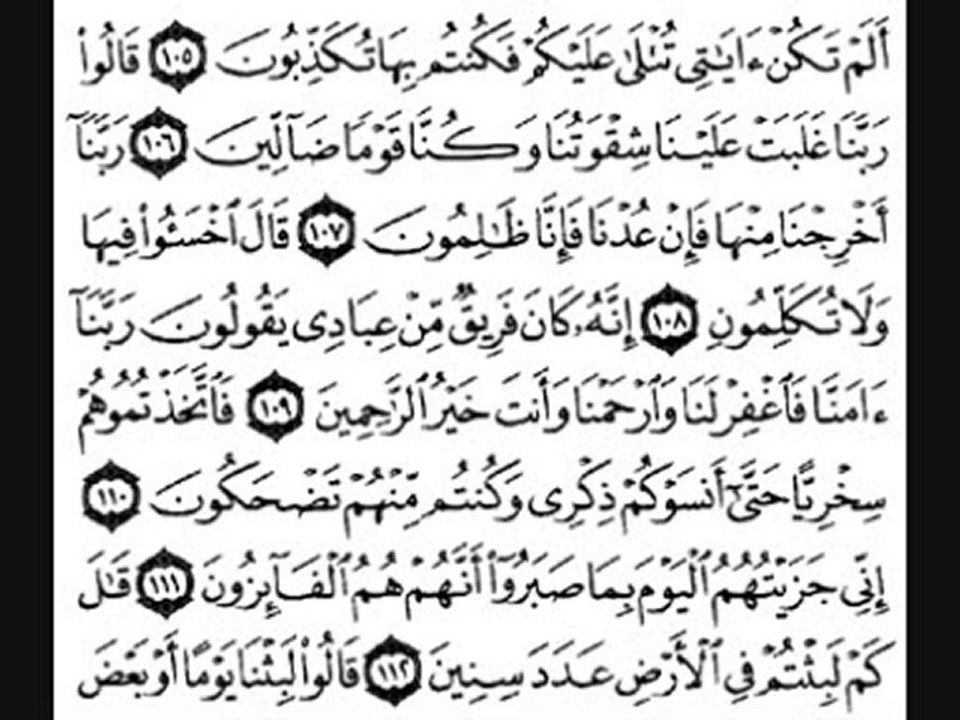 أَلَمْ تَكُنْ ءَايَـٰتِى تُتْلَىٰ عَلَيْكُمْ فَكُنتُم بِهَا تُكَذِّبُونَ ١٠٥ قَالُوا۟
رَبَّنَا غَلَبَتْ عَلَيْنَا شِقْوَتُنَا وَكُنَّا قَوْمًا ضَآلِّينَ ١٠٦ رَبَّنَآ
أَخْرِجْنَا مِنْهَا فَإِنْ عُدْنَا فَإِنَّا ظَـٰلِمُونَ ١٠٧ قَالَ ٱخْسَـُٔوا۟ فِيهَا
وَلَا تُكَلِّمُونِ ١٠٨ إِنَّهُۥ كَانَ فَرِيقٌ مِّنْ عِبَادِى يَقُولُونَ رَبَّنَآ
ءَامَنَّا فَٱغْفِرْ لَنَا وَٱرْحَمْنَا وَأَنتَ خَيْرُ ٱلرَّٰحِمِينَ ١٠٩ فَٱتَّخَذْتُمُوهُمْ
سِخْرِيًّا حَتَّىٰٓ أَنسَوْكُمْ ذِكْرِى وَكُنتُم مِّنْهُمْ تَضْحَكُونَ ١١٠
إِنِّى جَزَيْتُهُمُ ٱلْيَوْمَ بِمَا صَبَرُوٓا۟ أَنَّهُمْ هُمُ ٱلْفَآئِزُونَ ١١١ قَـٰلَ
كَمْ لَبِثْتُمْ فِى ٱلْأَرْضِ عَدَدَ سِنِينَ ١١٢ قَالُوا۟ لَبِثْنَا يَوْمًا أَوْ بَعْضَ